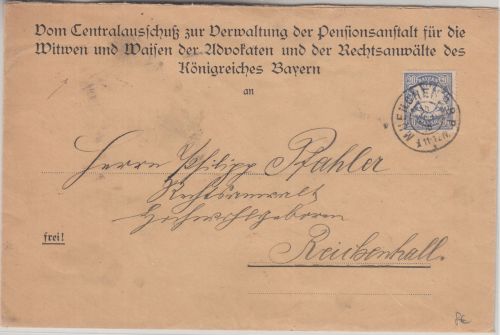 Vom Centralausschuß zur Verwaltung der Pensionsanstalt für die
Witwen und Waisen der Advokaten und der Rechtsanwälte des
Königreiches Bayern
an
Herrn Philipp Pfahler
Rechtsanwalt
Hochwohlgeboren
frei!
Reichenhall.
MUENCHEN
8€